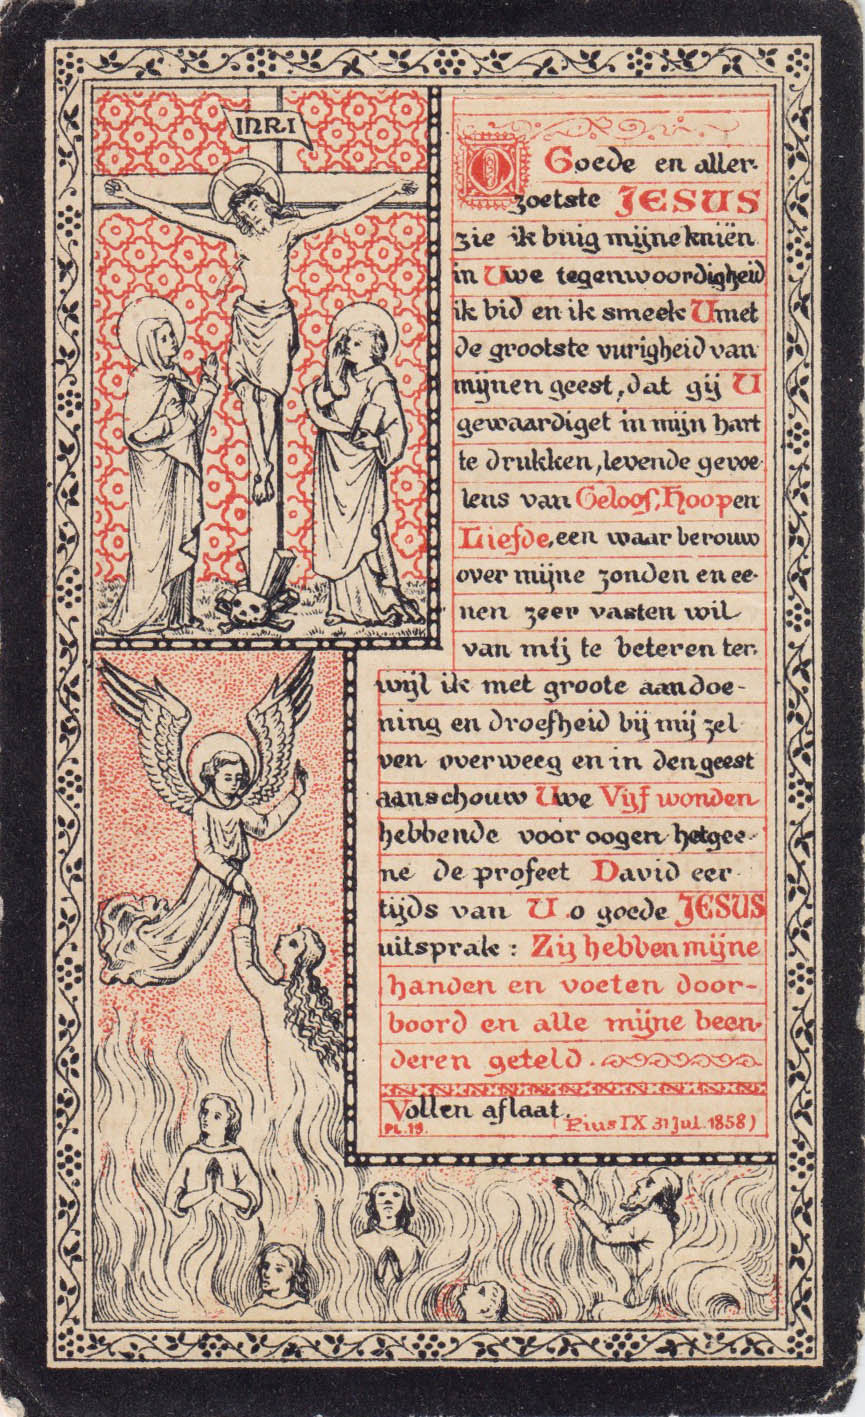 INRI
O Goede en aller-
zoetste JESUS
zie ik buig mijne kniën
in Uwe tegenwoordigheid
ik bid en ik smeek U met
de grootste vurigheid van
mijnen geest, dat gij U
gewaardiget in mijn hart
te drukken, levende gevoe-
lens van Geloof, Hoop en
Liefde, een waar berouw
over mijne zonden en ee-
nen zeer vasten wil
van mij te beteren ter-
wijl ik met groote aandoe-
ning en droefheid bij mij zel-
ven overweeg en in den geest
aanschouw Uwe Vijf wonden
hebbende voor oogen hetgee-
ne de profeet David eer-
tijds van U o goede JESUS
uitsprak: Zij hebben mijne
handen en voeten door-
boord en alle mijne been-
deren geteld.
Vollen aflaat.
PL. 19. (Pius IX 31 Jul. 1858)